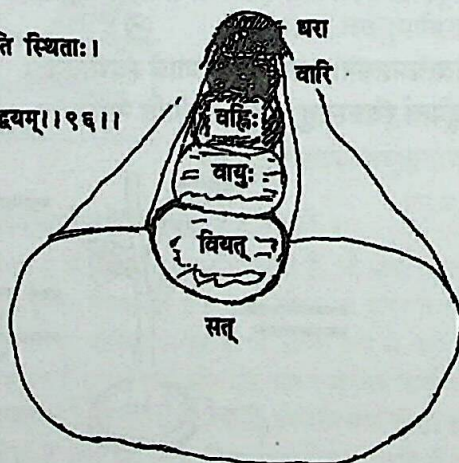 ति स्थिताः।
द्वयम्।।९६।।
धरा
वारि
वह्निः
वायुः
वियत्
सत्